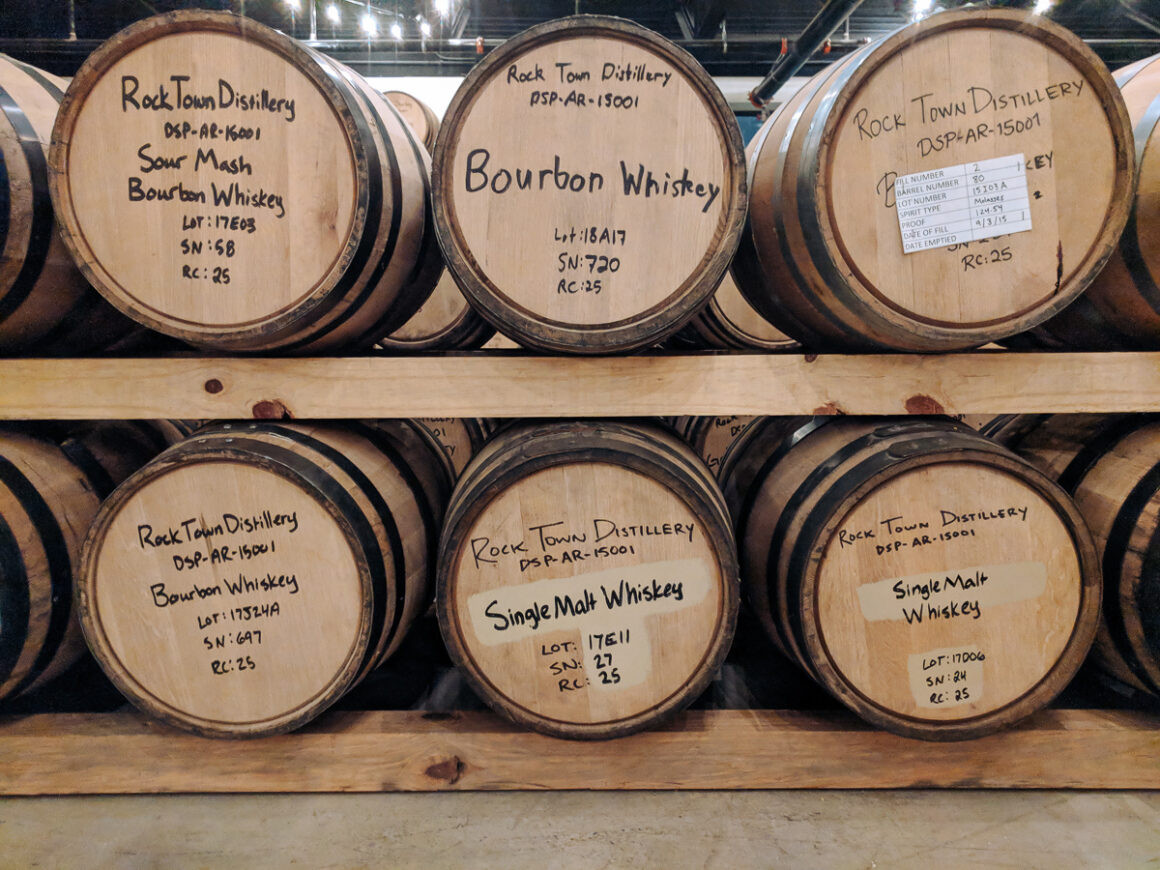 Rock Town Distillery
DSP-AR-15001
Sour Mash
Bourbon Whiskey
LOT: 17E03
SN: 58
RC: 25
Rock Town Distillery
DSP-AR-15001
Bourbon Whiskey
Lot: 18A17
SN: 720
RC: 25
Rock Town Distillery
DSP-AR-15001
KEY
FILL NUMBER 2
BARREL NUMBER 80
LOT NUMBER 15I03A
SPIRIT TYPE Molasses
PROOF 124.59
DATE OF FILL 9/3/15
DATE EMPTIED
RC: 25
Rock Town Distillery
DSP-AR-15001
Bourbon Whiskey
LOT: 17J24A
SN: 697
RC: 25
Rock Town Distillery
DSP-AR-15001
Single Malt Whiskey
LOT: 17E11
SN: 27
RC: 25
Rock Town Distillery
DSP-AR-15001
Single Malt
Whiskey
LOT: 17D06
SN: 24
RC: 25